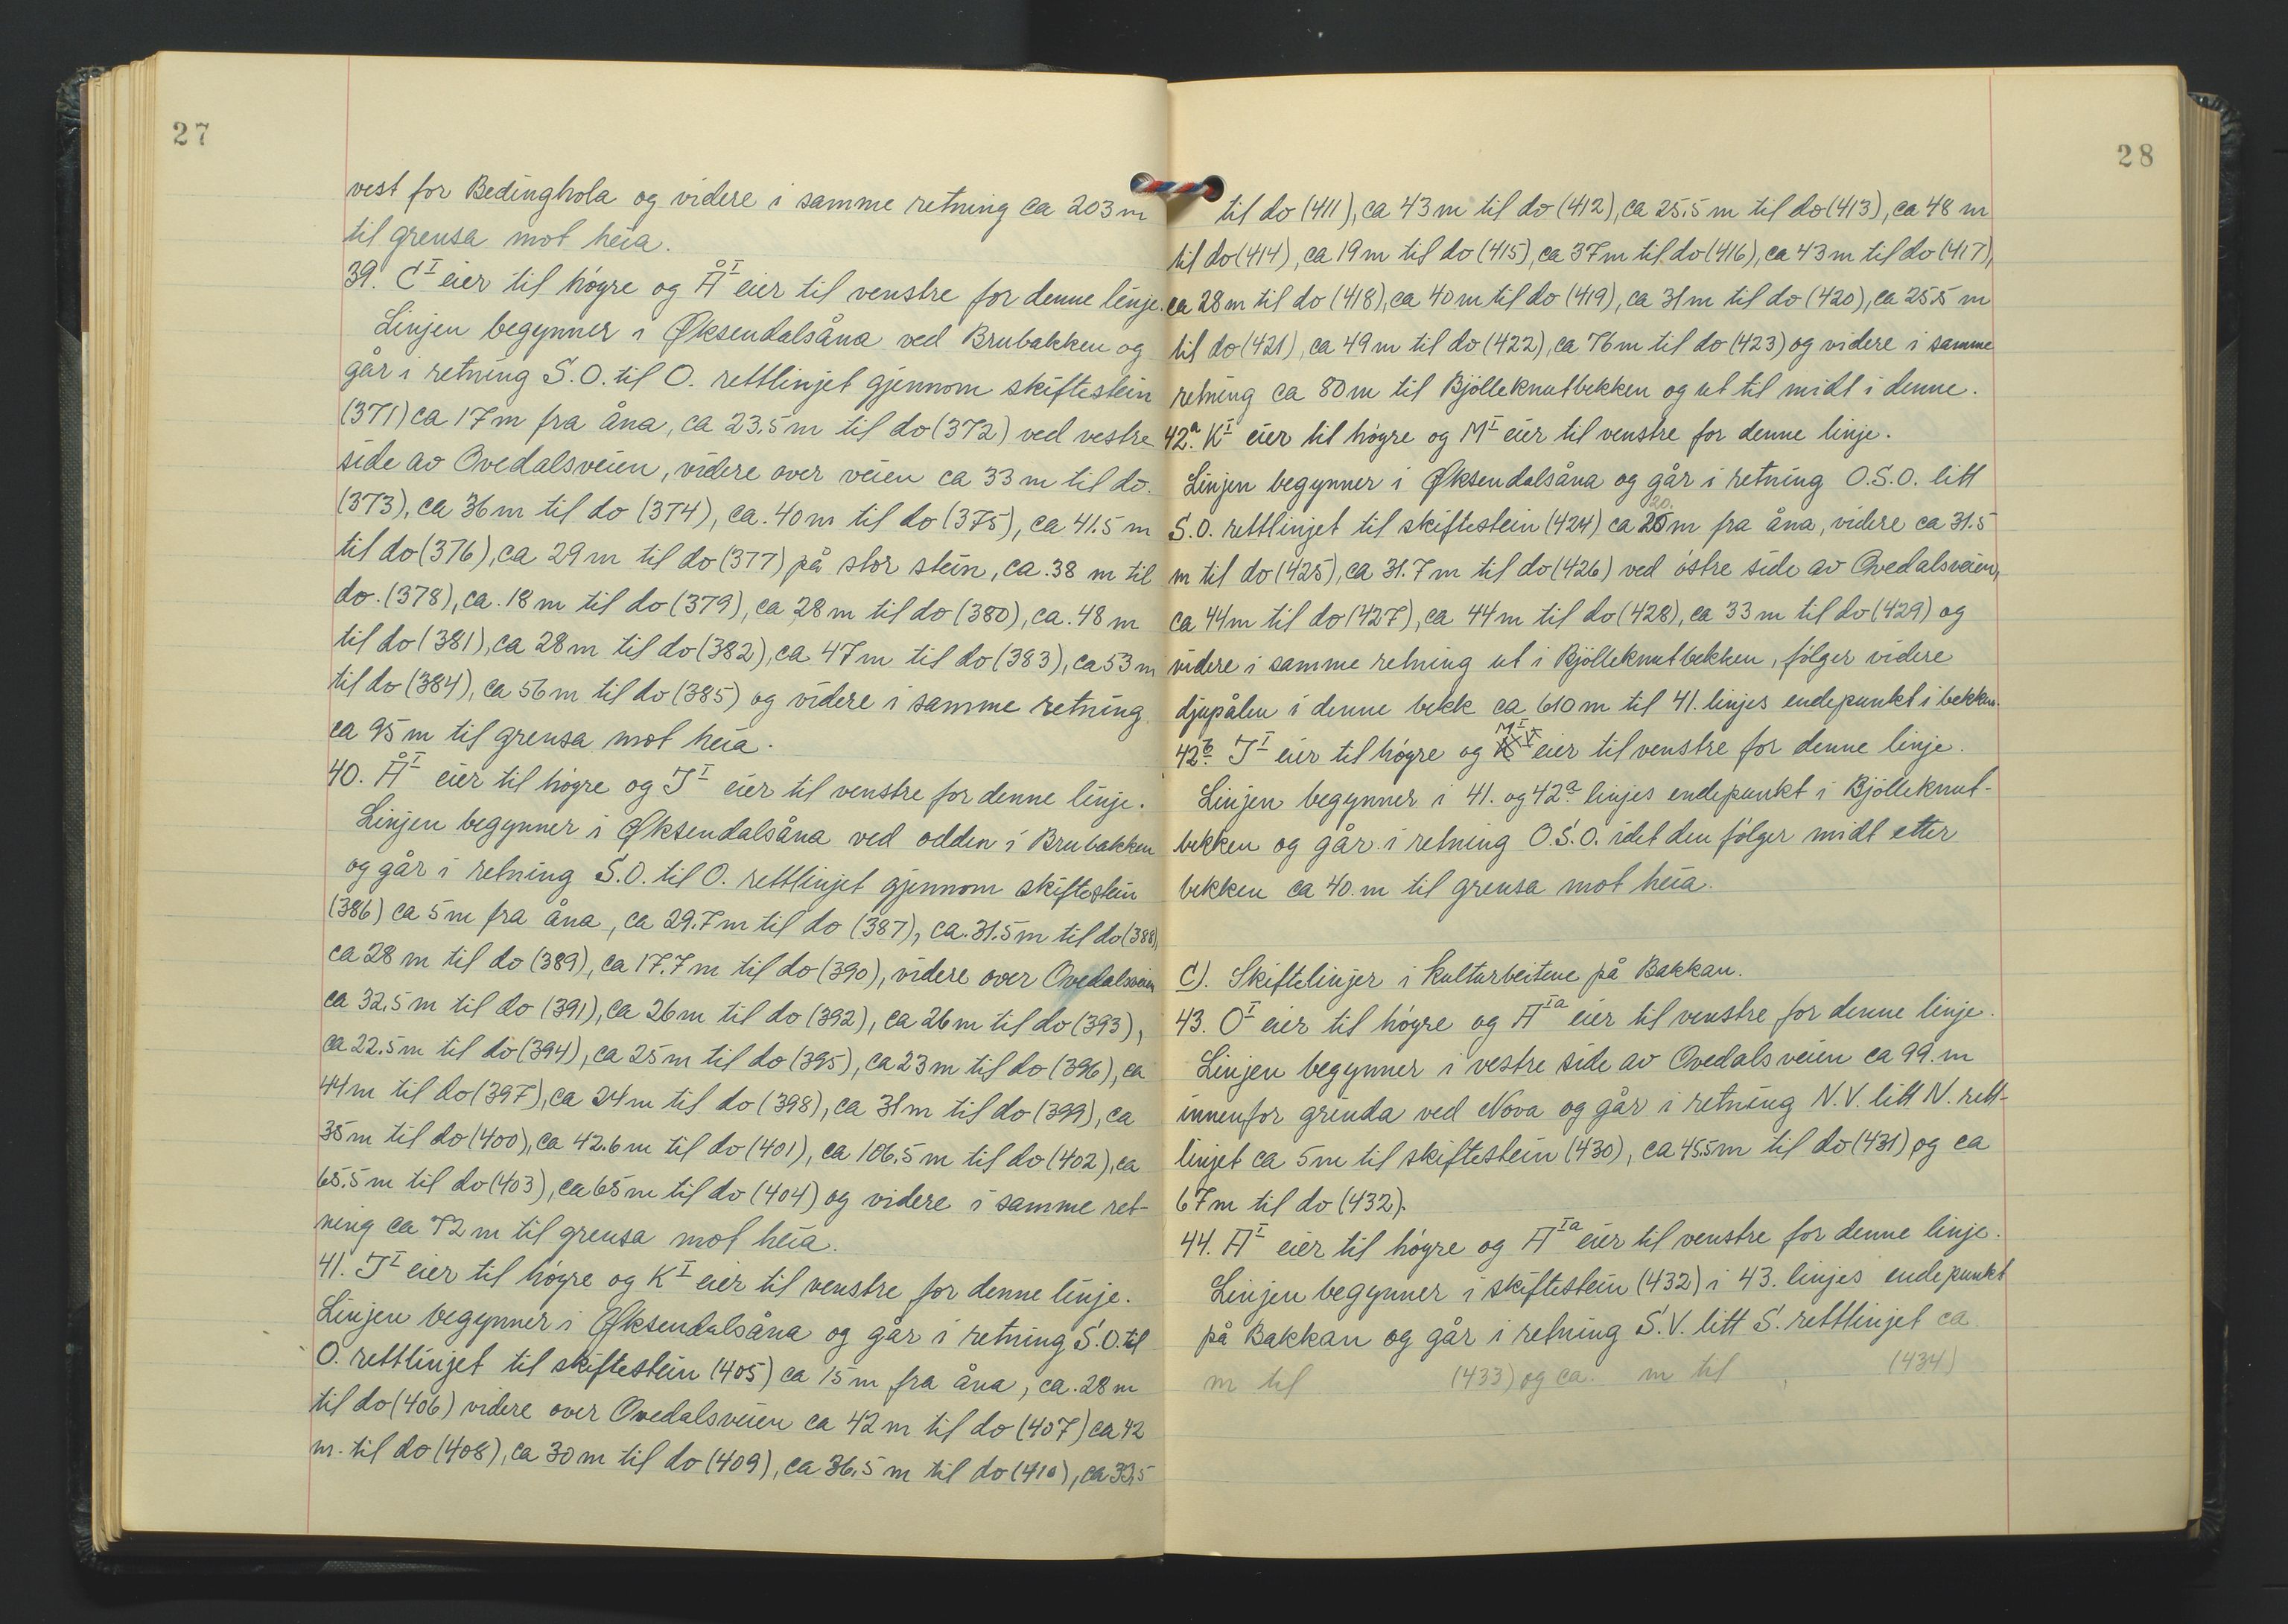 27
vest for Bedinghola og videre i samme retning ca 203 m
til grensa mot heia.
39. C^I eier til högre og Å^I eier til venstre for denne linje.
Linjen begynner i Øksendalsåna ved Brubakken og
går i retning S.O. til O. rettlinjet gjennom skiftestein
(371) ca 17 m fra åna, ca 23.5 m til do (372) ved vestre
side av Ovedalsveien, videre over veien ca 33 m til do.
(373), ca 36 m til do (374), ca. 40 m til do (375), ca 41.5 m
til do (376), ca 29 m til do (377) på stor stein, ca. 38 m til
do. (378), ca. 18 m til do (379), ca 28 m til do (380), ca. 48 m
til do (381), ca 28 m til do (382), ca 47 m til do (383), ca 53 m
til do (384), ca 56 m til do (385) og videre i samme retning
ca 95 m til grensa mot heia.
40. Å^I eier til högre og J^I eier til venstre for denne linje.
Linjen begynner i Øksendalsåna ved odden i Brubakken
og går i retning S.O. til O. rettlinjet gjennom skiftestein
(386) ca 5 m fra åna, ca 29.7 m til do (387), ca. 31.5 m til do (388),
ca 28 m til do (389), ca 17.7 m til do (390), videre over Ovedalsveien
ca 32.5 m til do (391), ca 26 m til do (392), ca 26 m til do (393),
ca 22.5 m til do (394), ca 25 m til do (395), ca 23 m til do (396), ca
44 m til do (397), ca 24 m til do (398), ca 31 m til do (399), ca
35 m til do (400), ca 42.6 m til do (401), ca 106.5 m til do (402), ca
65.5 m til do (403), ca 65 m til do (404) og videre i samme ret-
ning ca 72 m til grensa mot heia.
41. J^I eier til högre og K^I eier til venstre for denne linje.
Linjen begynner i Øksendalsåna og går i retning S.O. til
O. rettlinjet til skiftestein (405) ca 15 m fra åna, ca. 28 m
til do (406) videre over Ovedalsveien ca 42 m til do (407) ca 42
m. til do (408), ca 30 m til do (409), ca 36.5 m til do (410), ca 33.5
28
til do (411), ca 43 m til do (412), ca 25.5 m til do (413), ca 48 m
til do (414), ca 19 m til do (415), ca 37 m til do (416), ca 43 m til do (417),
ca 28 m til do (418), ca 40 m til do (419), ca 31 m til do (420), ca 25.5 m
til do (421), ca 49 m til do (422), ca 76 m til do (423) og videre i samme
retning ca 80 m til Bjölleknutbekken og ut til midt i denne.
42a. K^I eier til högre og M^I eier til venstre for denne linje.
Linjen begynner i Øksendalsåna og går i retning O.S.O. litt
20.
S.O. rettlinjet til skiftestein (424) ca 25 m fra åna, videre ca 31.5
m til do (425), ca 31.7 m til do (426) ved östre side av Ovedalsveien,
ca 44 m til do (427), ca 44 m til do (428), ca 33 m til do (429) og
videre i samme retning ut i Bjölleknutbekken, fölger videre
djupålen i denne bekk ca 610 m til 41. linjes endepunkt i bekken.
M^I
42b. J^I eier til högre og K^I eier til venstre for denne linje.
Linjen begynner i 41. og 42a. linjes endepunkt i Bjölleknut-
bekken og går i retning O.S.O. idet den fölger midt etter
bekken ca 40. m til grensa mot heia.
C). Skiftelinjer i kulturbeitene på Bakkan.
43. O^I eier til högre og A^Ia eier til venstre for denne linje.
Linjen begynner i vestre side av Ovedalsveien ca 99. m
innenfor grinda ved Nova og går i retning N.V. litt N. rett-
linjet ca 5 m til skiftestein (430), ca 45.5 m til do (431) og ca
67 m til do (432).
44. A^I eier til högre og A^Ia eier til venstre for denne linje.
Linjen begynner i skiftestein (432) i 43. linjes endepunkt
på Bakkan og går i retning S.V. litt S. rettlinjet ca
m til (433) og ca. m til (434)